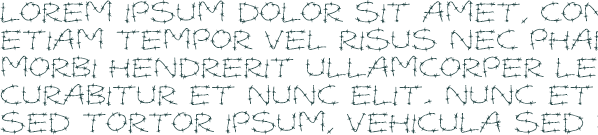 LOREM IPSUM DOLOR SIT AMET, CON
ETIAM TEMPOR VEL RISUS NEC PHA
MORBI HENDRERIT ULLAMCORPER LE
CURABITUR ET NUNC ELIT. NUNC ET
SED TORTOR IPSUM, VEHICULA SED